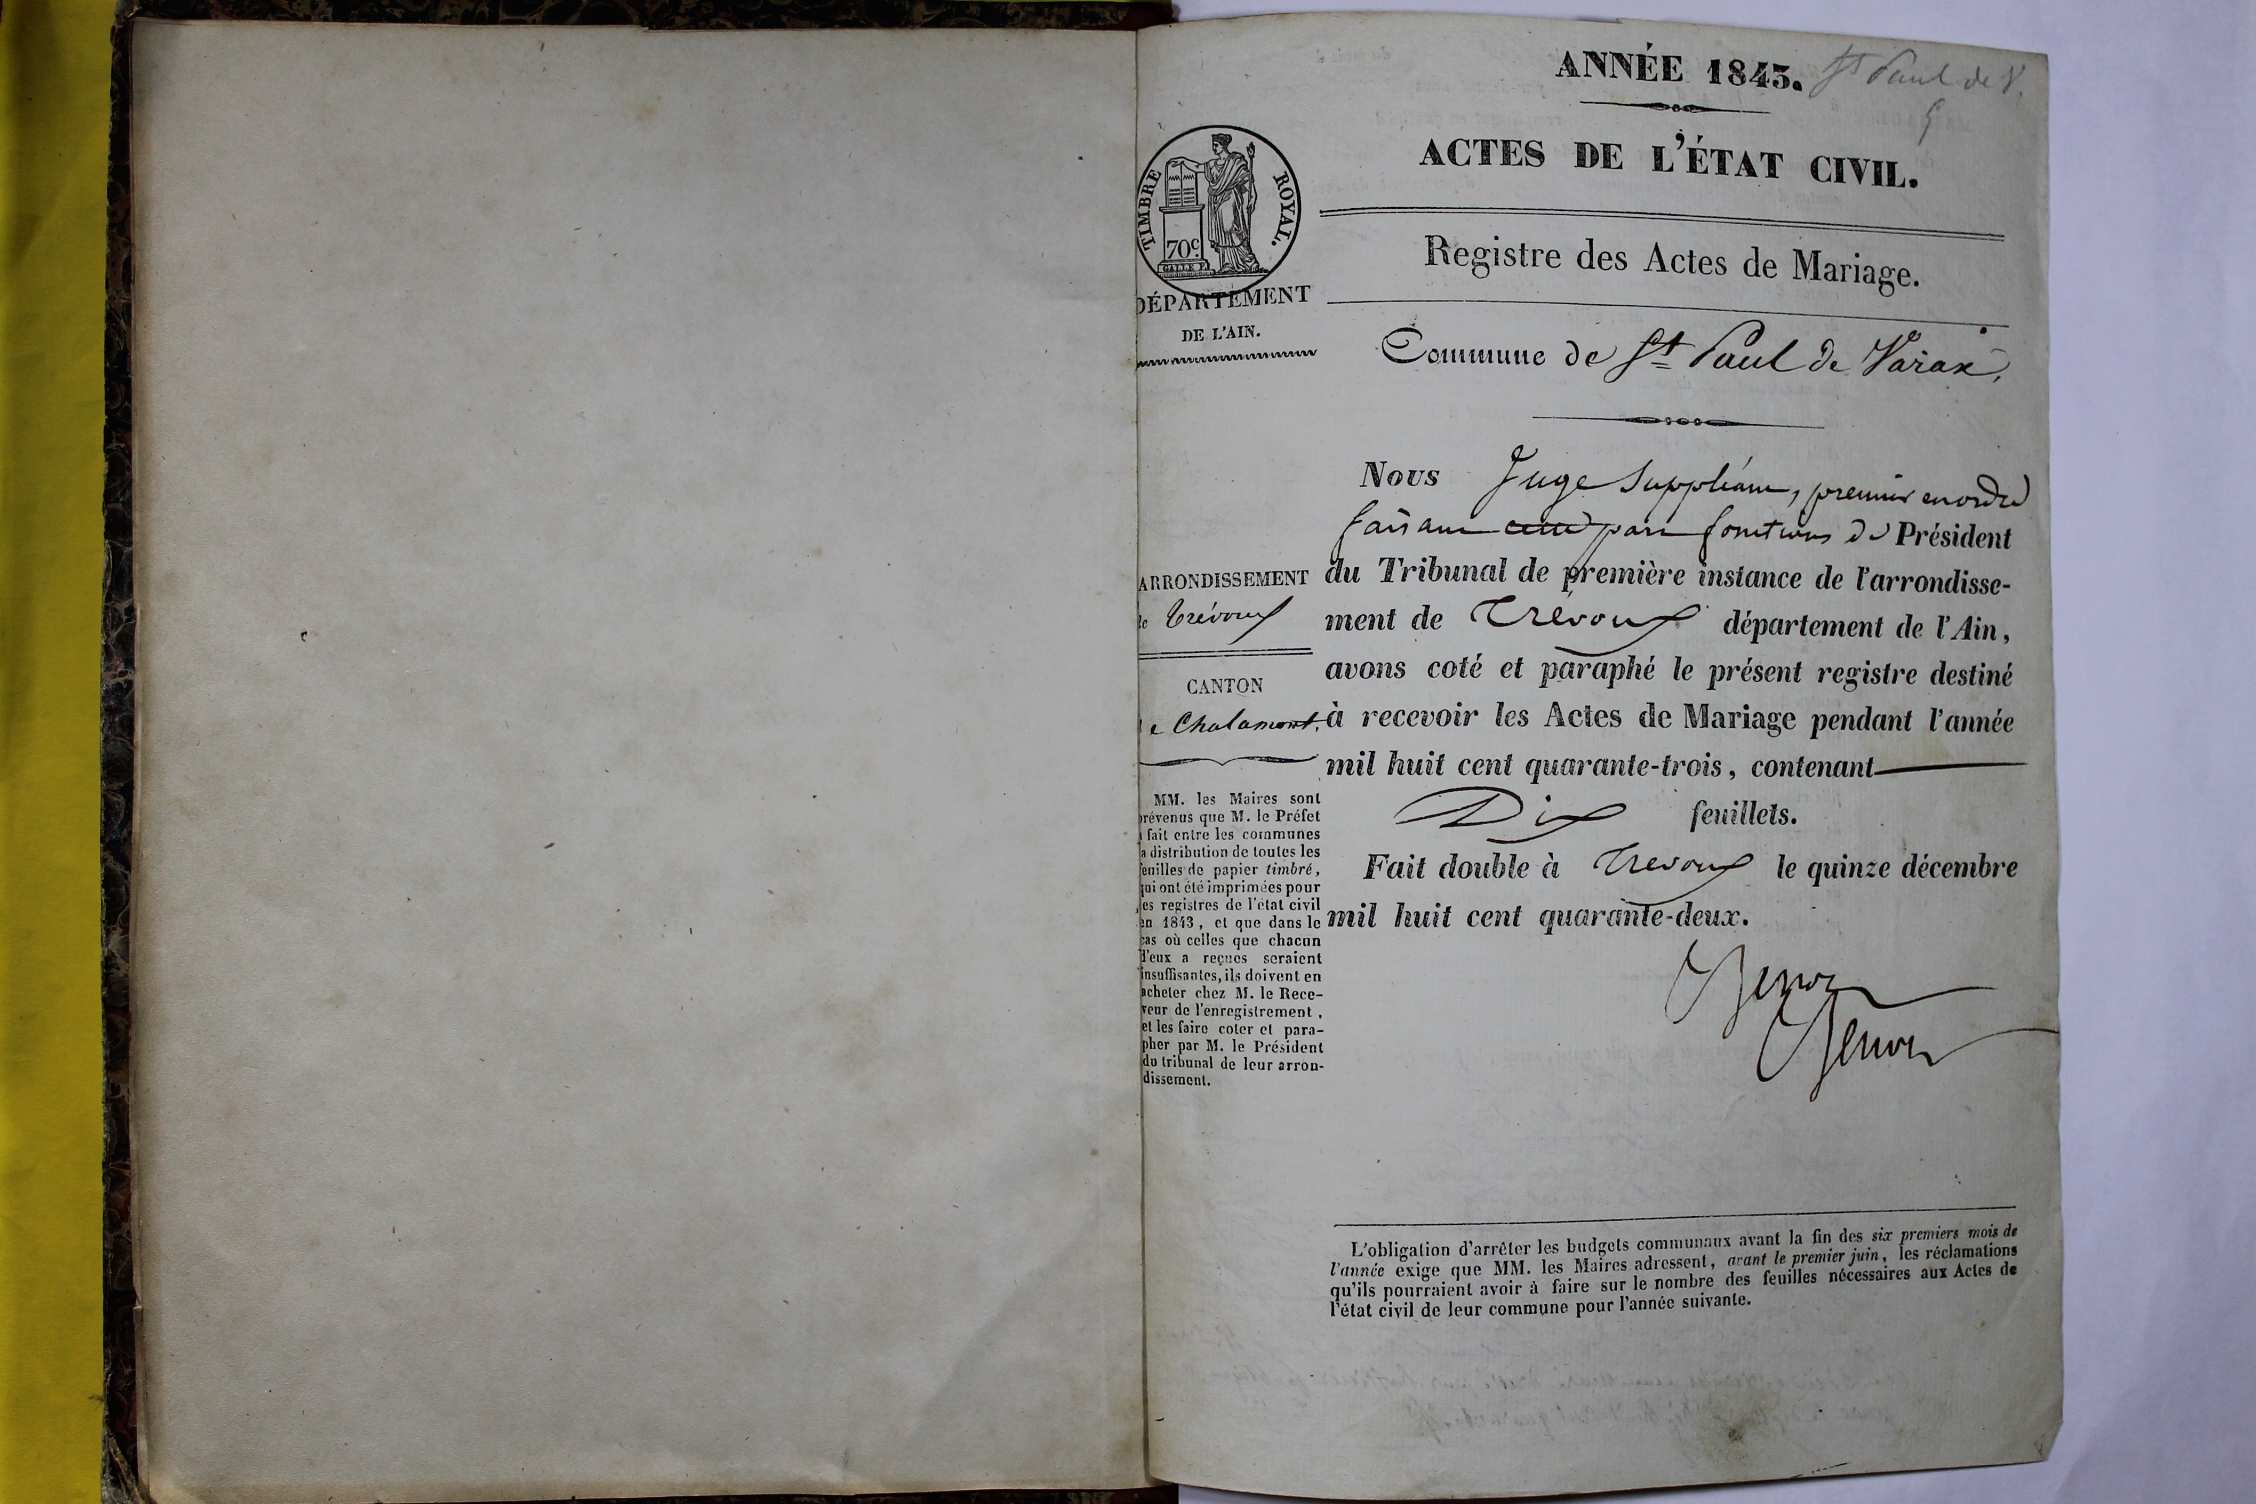 ANNÉE 1843. St Paul de V.
5
ACTES DE L'ÉTAT CIVIL.
TIMBRE ROYAL.
70c
DÉPARTEMENT
DE L'AIN.
Registre des Actes de Mariage.
Commune de St Paul de Varax.
ARRONDISSEMENT
de Trévoux
CANTON
de Chalamont.
MM. les Maires sont
prévenus que M. le Préfet
a fait entre les communes
la distribution de toutes les
feuilles de papier timbré,
qui ont été imprimées pour
les registres de l'état civil
en 1843, et que dans le
cas où celles que chacun
d'eux a reçues seraient
insuffisantes, ils doivent en
acheter chez M. le Rece-
veur de l'enregistrement,
et les faire coter et para-
pher par M. le Président
du tribunal de leur arron-
dissement.
Nous Juge Suppléant, premier en ordre
faisant par fonctions de Président
du Tribunal de première instance de l'arrondisse-
ment de Trévoux département de l'Ain,
avons coté et paraphé le présent registre destiné
à recevoir les Actes de Mariage pendant l'année
mil huit cent quarante-trois, contenant
Dix feuillets.
Fait double à Trevoux le quinze décembre
mil huit cent quarante-deux.
L'obligation d'arrêter les budgets communaux avant la fin des six premiers mois de
l'année exige que MM. les Maires adressent, avant le premier juin, les réclamations
qu'ils pourraient avoir à faire sur le nombre des feuilles nécessaires aux Actes de
l'état civil de leur commune pour l'année suivante.